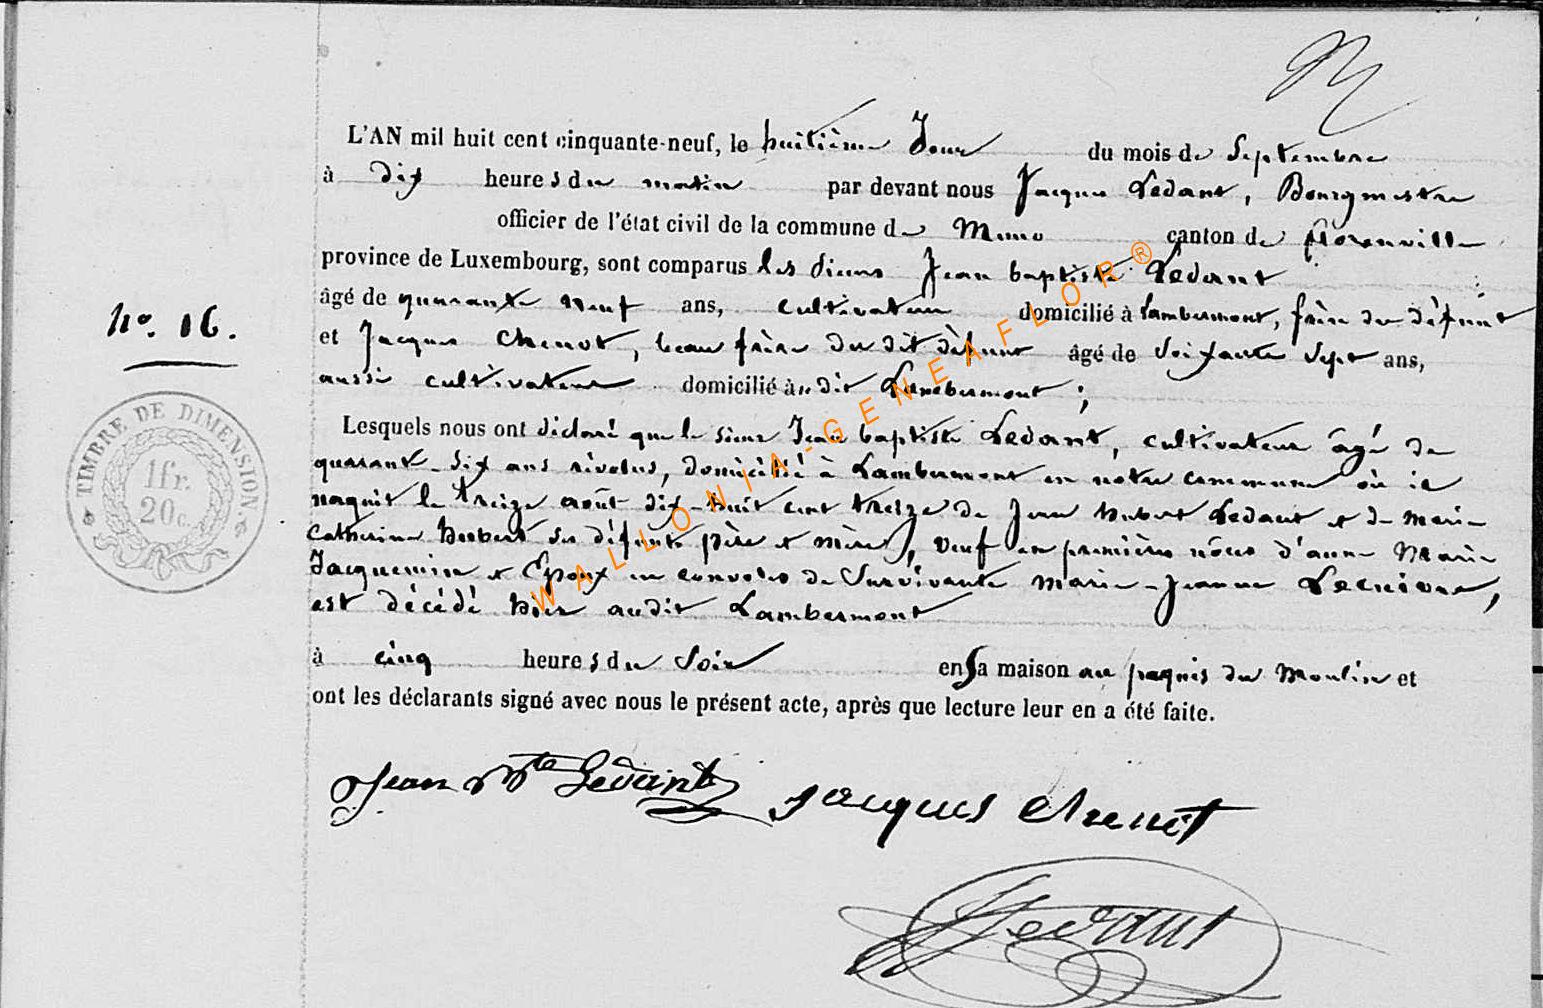 L'AN mil huit cent cinquante-neuf, le huitième Jour du mois de Septembre
à dix heures du matin par devant nous Jacques Ledant, Bourgmestre
officier de l'état civil de la commune de Muno canton de florenville
province de Luxembourg, sont comparus les sieurs Jean baptiste Ledant
âgé de quarante neuf ans, cultivateur domicilié à Lambermont, frère du défunt
No. 16.
et Jacques Chenot, beau frère du dit défunt âgé de soixante sept ans,
aussi cultivateur domicilié au dit Lambermont ;
Lesquels nous ont déclaré que le sieur Jean baptiste Ledant, cultivateur âgé de
quarante-six ans révolus, domicilié à Lambermont en notre commune où il
naquit le treize août dix-huit cent treize de Jean hubert Ledant et de Marie
Catherine hubert ses défunts père et mère, veuf en premières nôces d'anne Marie
Jacquemin et Epoux en convoles de Survivante Marie-Jeanne,
est décédé hier audit Lambermont
à cinq heures du soir en sa maison au paquis du Moulin et
ont les déclarants signé avec nous le présent acte, après que lecture leur en a été faite.
TIMBRE DE DIMENSION
1fr.
20c.
Jean Bte Ledant jacques chenot
Ledant
WALLONIA-GENEAFLOR®